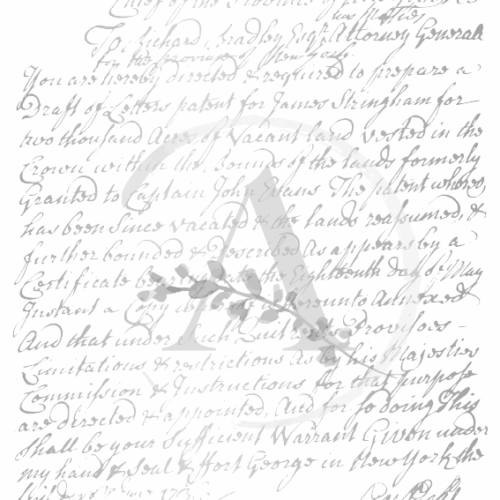 Chief of the Province of
his Majties
To Richard Bradley Esqr. Attorney General
for the province of New York
You are hereby directed & required to prepare a
Draft of Letters patent for James Stringham for
two thousand Acres of Vacant land vested in the
Crown within the bounds of the lands formerly
Granted to Captain John Evans The patent whereof
has been since vacated & the lands reassumed, &
further bounded & Described As appears by a
Certificate bearing date the Eighteenth day of May
Instant a Copy whereof is hereunto Annexed
And that under such Quitrents Provisoes
Limitations & restrictions As by his Majesties
Commission & Instructions for that purpose
are directed & appointed. And for so doing This
Shall be your Sufficient Warrant Given under
my hand & Seal at Fort George in New York the
A